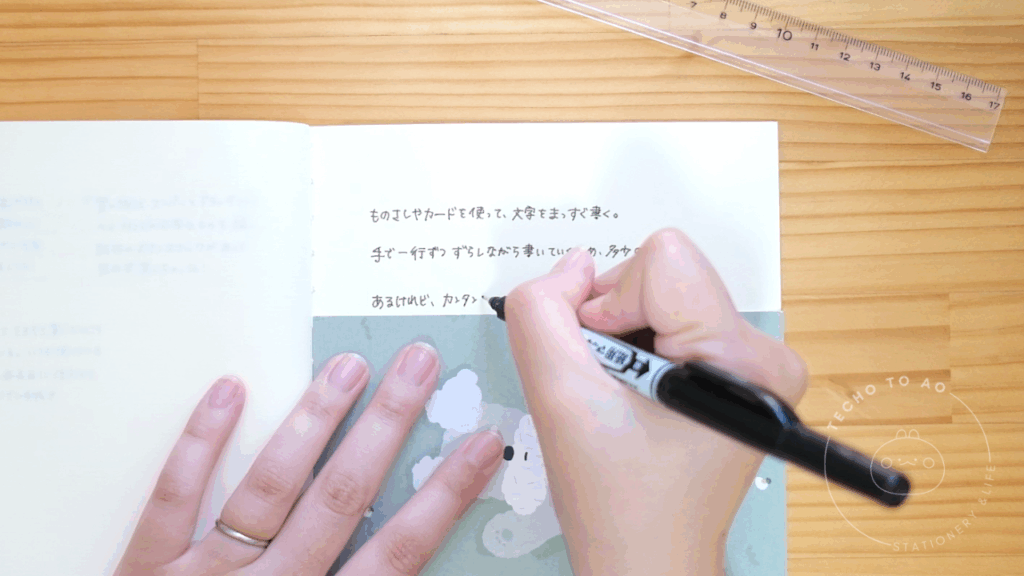 ものさしやカードを使って、文字をまっすぐ書く。
手で一行ずつ ずらしながら書いていくため、多少の
あるけれど、カンタン
7 8 9 10 11 12 13 14 15 16 17
TECHO TO AO
STATIONERY & LIFE